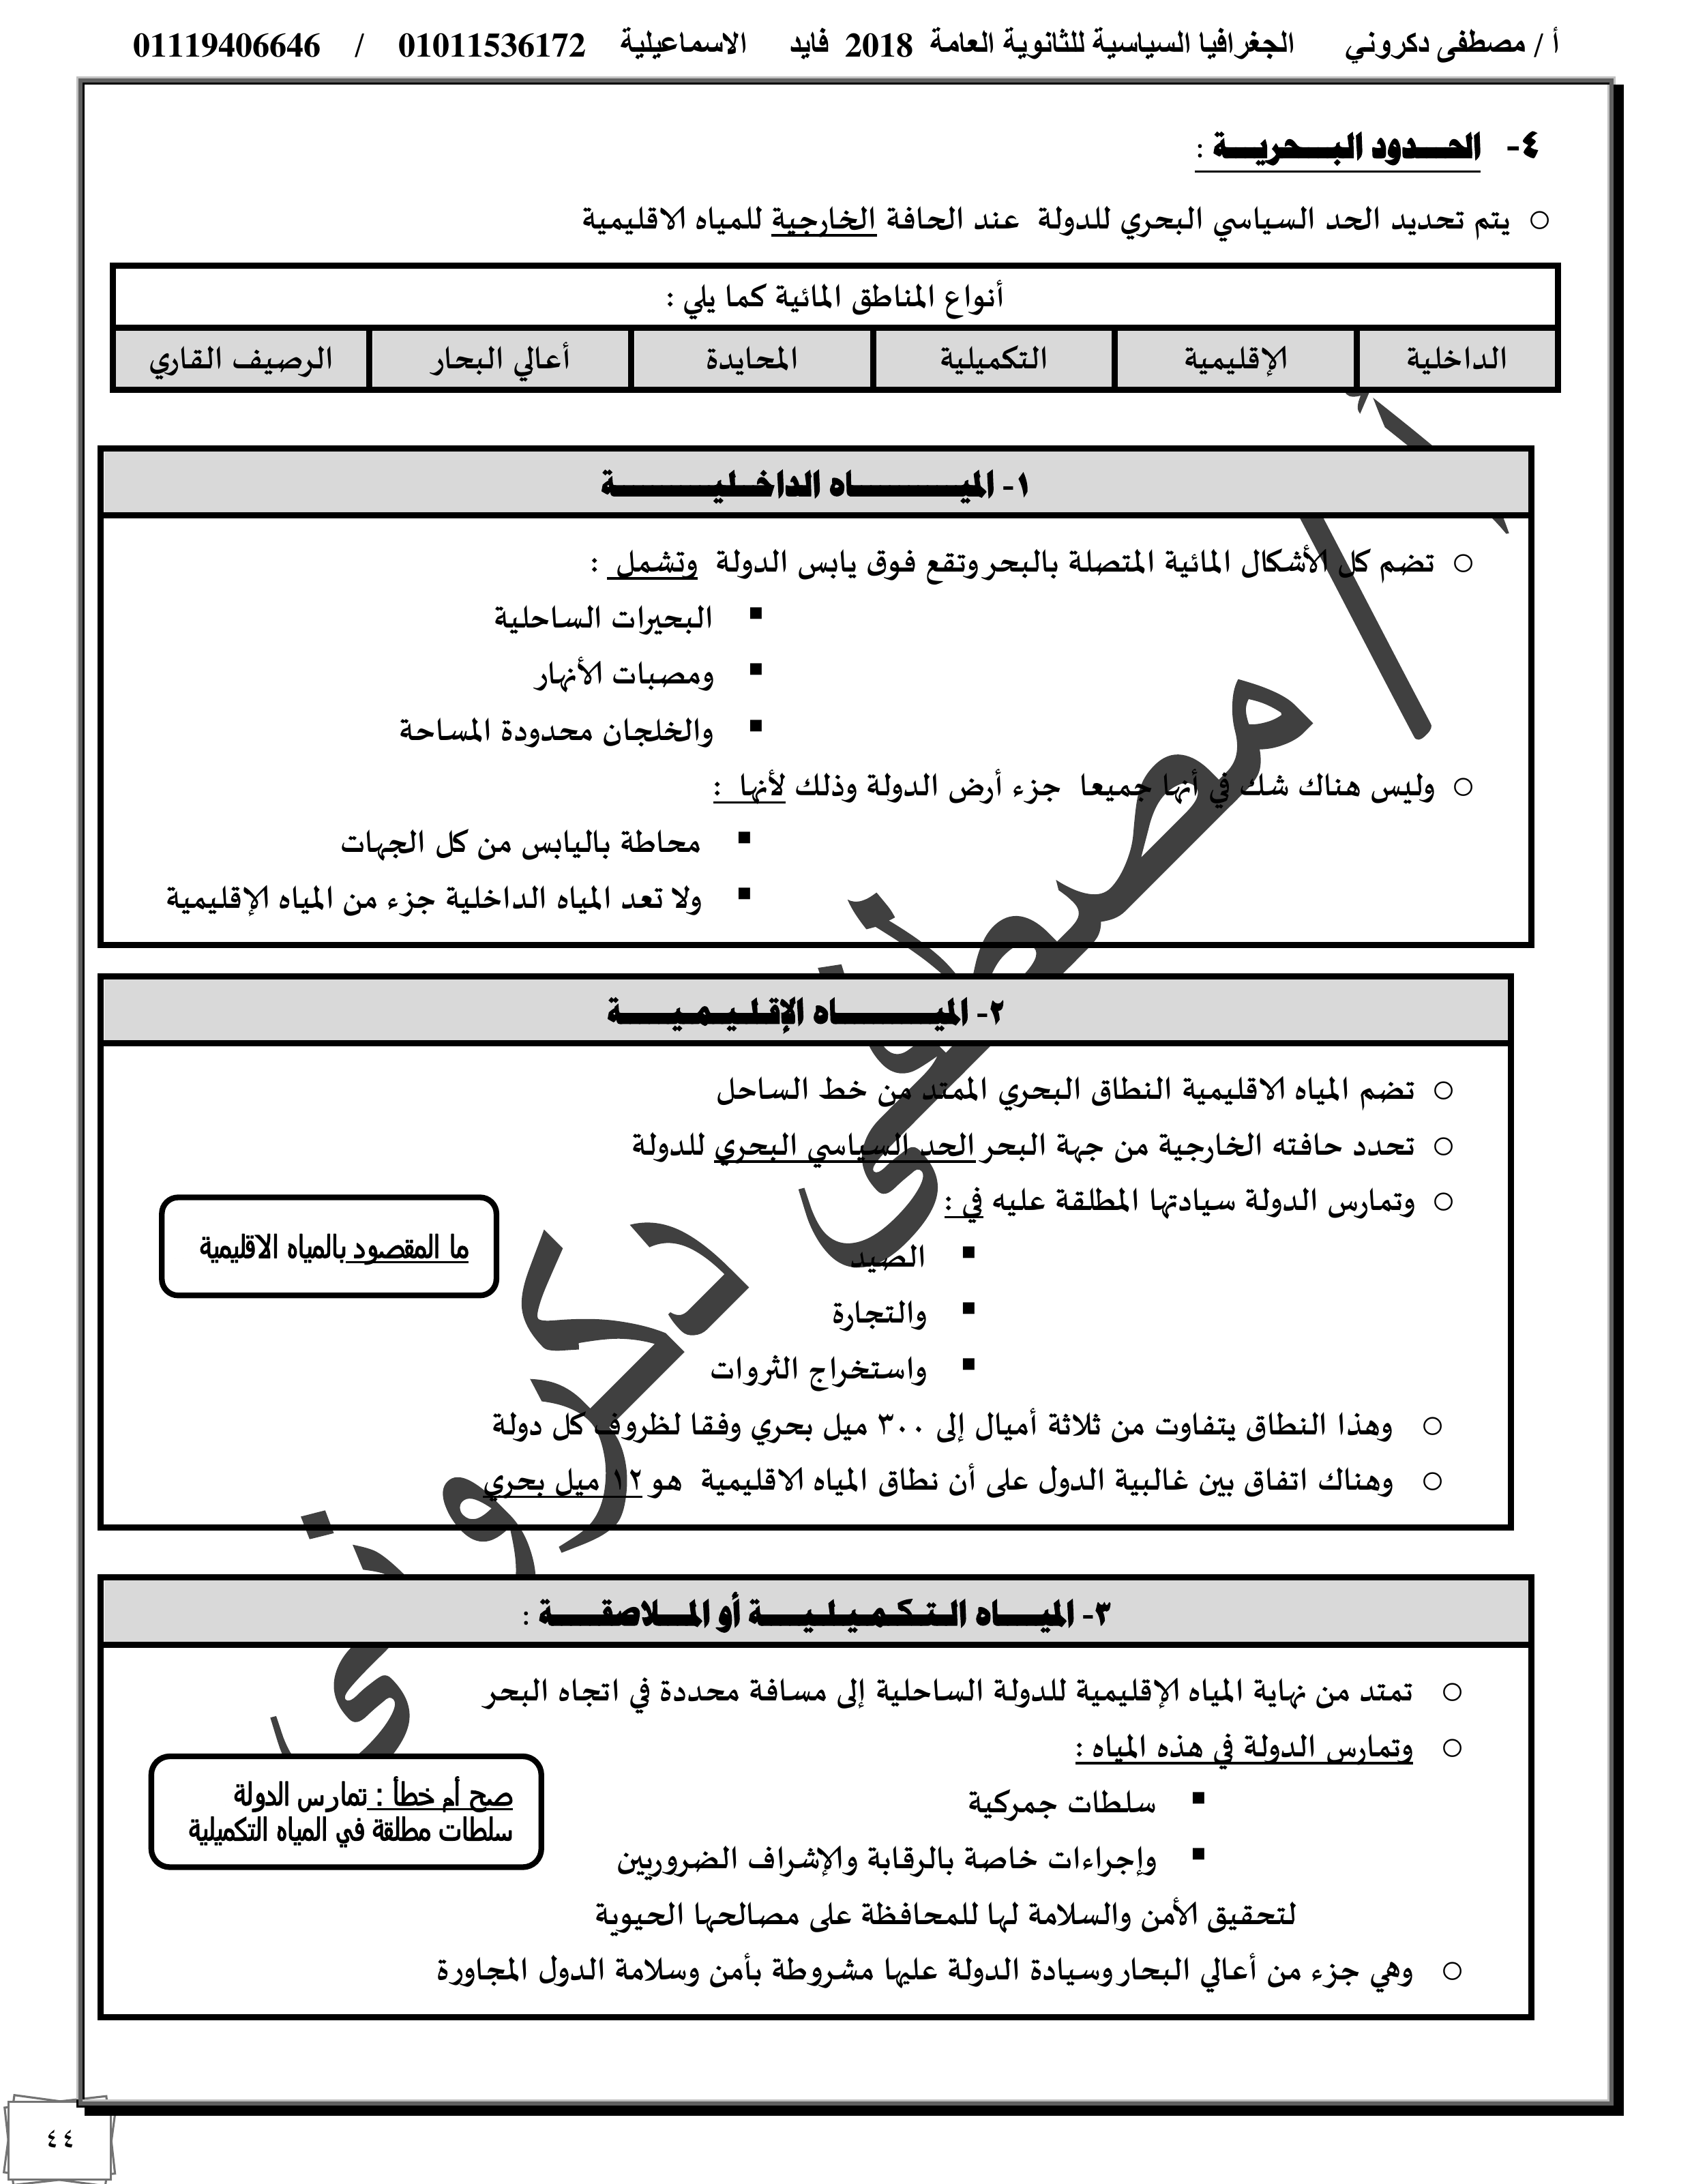 أ / مصطفى دكروني الجغرافيا السياسية للثانوية العامة 2018 فايد الاسماعيلية 01011536172 / 01119406646
٤- الحـــدود البـــحريـــة :
يتم تحديد الحد السياسي البحري للدولة عند الحافة الخارجية للمياه الاقليمية
أنواع المناطق المائية كما يلي :
الداخلية الإقليمية التكميلية المحايدة أعالي البحار الرصيف القاري
١- الميـــــــاه الداخـلـيـــــــة
تضم كل الأشكال المائية المتصلة بالبحر وتقع فوق يابس الدولة وتشمل :
البحيرات الساحلية
ومصبات الأنهار
والخلجان محدودة المساحة
وليس هناك شك في أنها جميعا جزء أرض الدولة وذلك لأنها :
محاطة باليابس من كل الجهات
ولا تعد المياه الداخلية جزء من المياه الإقليمية
٢- الميـــــــاه الإقـلـيـمـيـــــة
تضم المياه الاقليمية النطاق البحري الممتد من خط الساحل
تحدد حافته الخارجية من جهة البحر الحد السياسي البحري للدولة
وتمارس الدولة سيادتها المطلقة عليه في :
الصيد
والتجارة
واستخراج الثروات
ما المقصود بالمياه الاقليمية
وهذا النطاق يتفاوت من ثلاثة أميال إلى ٣٠٠ ميل بحري وفقا لظروف كل دولة
وهناك اتفاق بين غالبية الدول على أن نطاق المياه الاقليمية هو ١٢ ميل بحري
٣- الميــــاه الـتـكـمـيـلـيــــة أو المـــلاصقــــة :
تمتد من نهاية المياه الإقليمية للدولة الساحلية إلى مسافة محددة في اتجاه البحر
وتمارس الدولة في هذه المياه :
سلطات جمركية
وإجراءات خاصة بالرقابة والإشراف الضروريين
لتحقيق الأمن والسلامة لها للمحافظة على مصالحها الحيوية
صح أم خطأ : تمارس الدولة
سلطات مطلقة في المياه التكميلية
وهي جزء من أعالي البحار وسيادة الدولة عليها مشروطة بأمن وسلامة الدول المجاورة
أ / مصطفى دكروني
٤٤